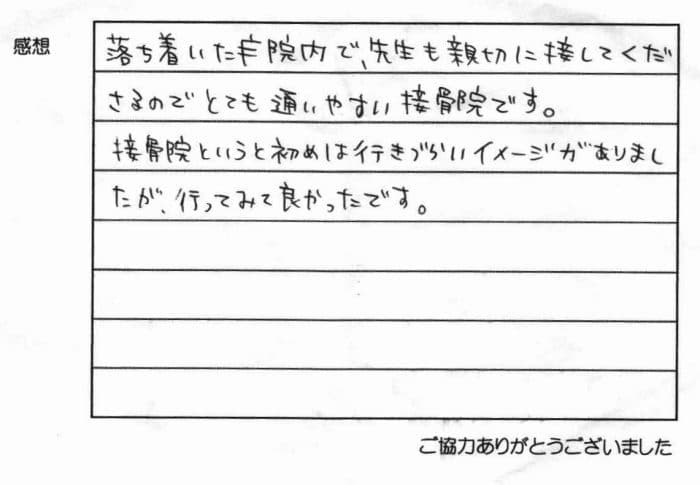 感想
落ち着いた院内で、先生も親切に接してくだ
さるのでとても通いやすい接骨院です。
接骨院というと初めは行きづらいイメージがありまし
たが、行ってみて良かったです。
ご協力ありがとうございました